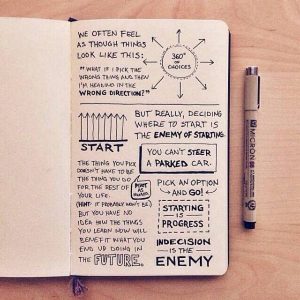 WE OFTEN FEEL
AS THOUGH THINGS
LOOK LIKE THIS:
"WHAT IF I PICK THE
WRONG THING AND THEN
I'M HEADING IN THE
WRONG DIRECTION?"
360°
OF
CHOICES
START
BUT REALLY, DECIDING
WHERE TO START IS
THE ENEMY OF STARTING.
YOU CAN'T STEER
A PARKED CAR.
THE THING YOU PICK
DOESN'T HAVE TO BE
THE THING YOU DO
FOR THE REST OF
YOUR LIFE.
(HINT: IT PROBABLY WON'T BE)
BUT YOU HAVE NO
IDEA HOW THE THINGS
YOU LEARN NOW WILL
BENEFIT WHAT YOU
END UP DOING IN
THE FUTURE.
PICK AN OPTION
AND GO!
STARTING
IS
PROGRESS
INDECISION
IS THE
ENEMY
MICRON